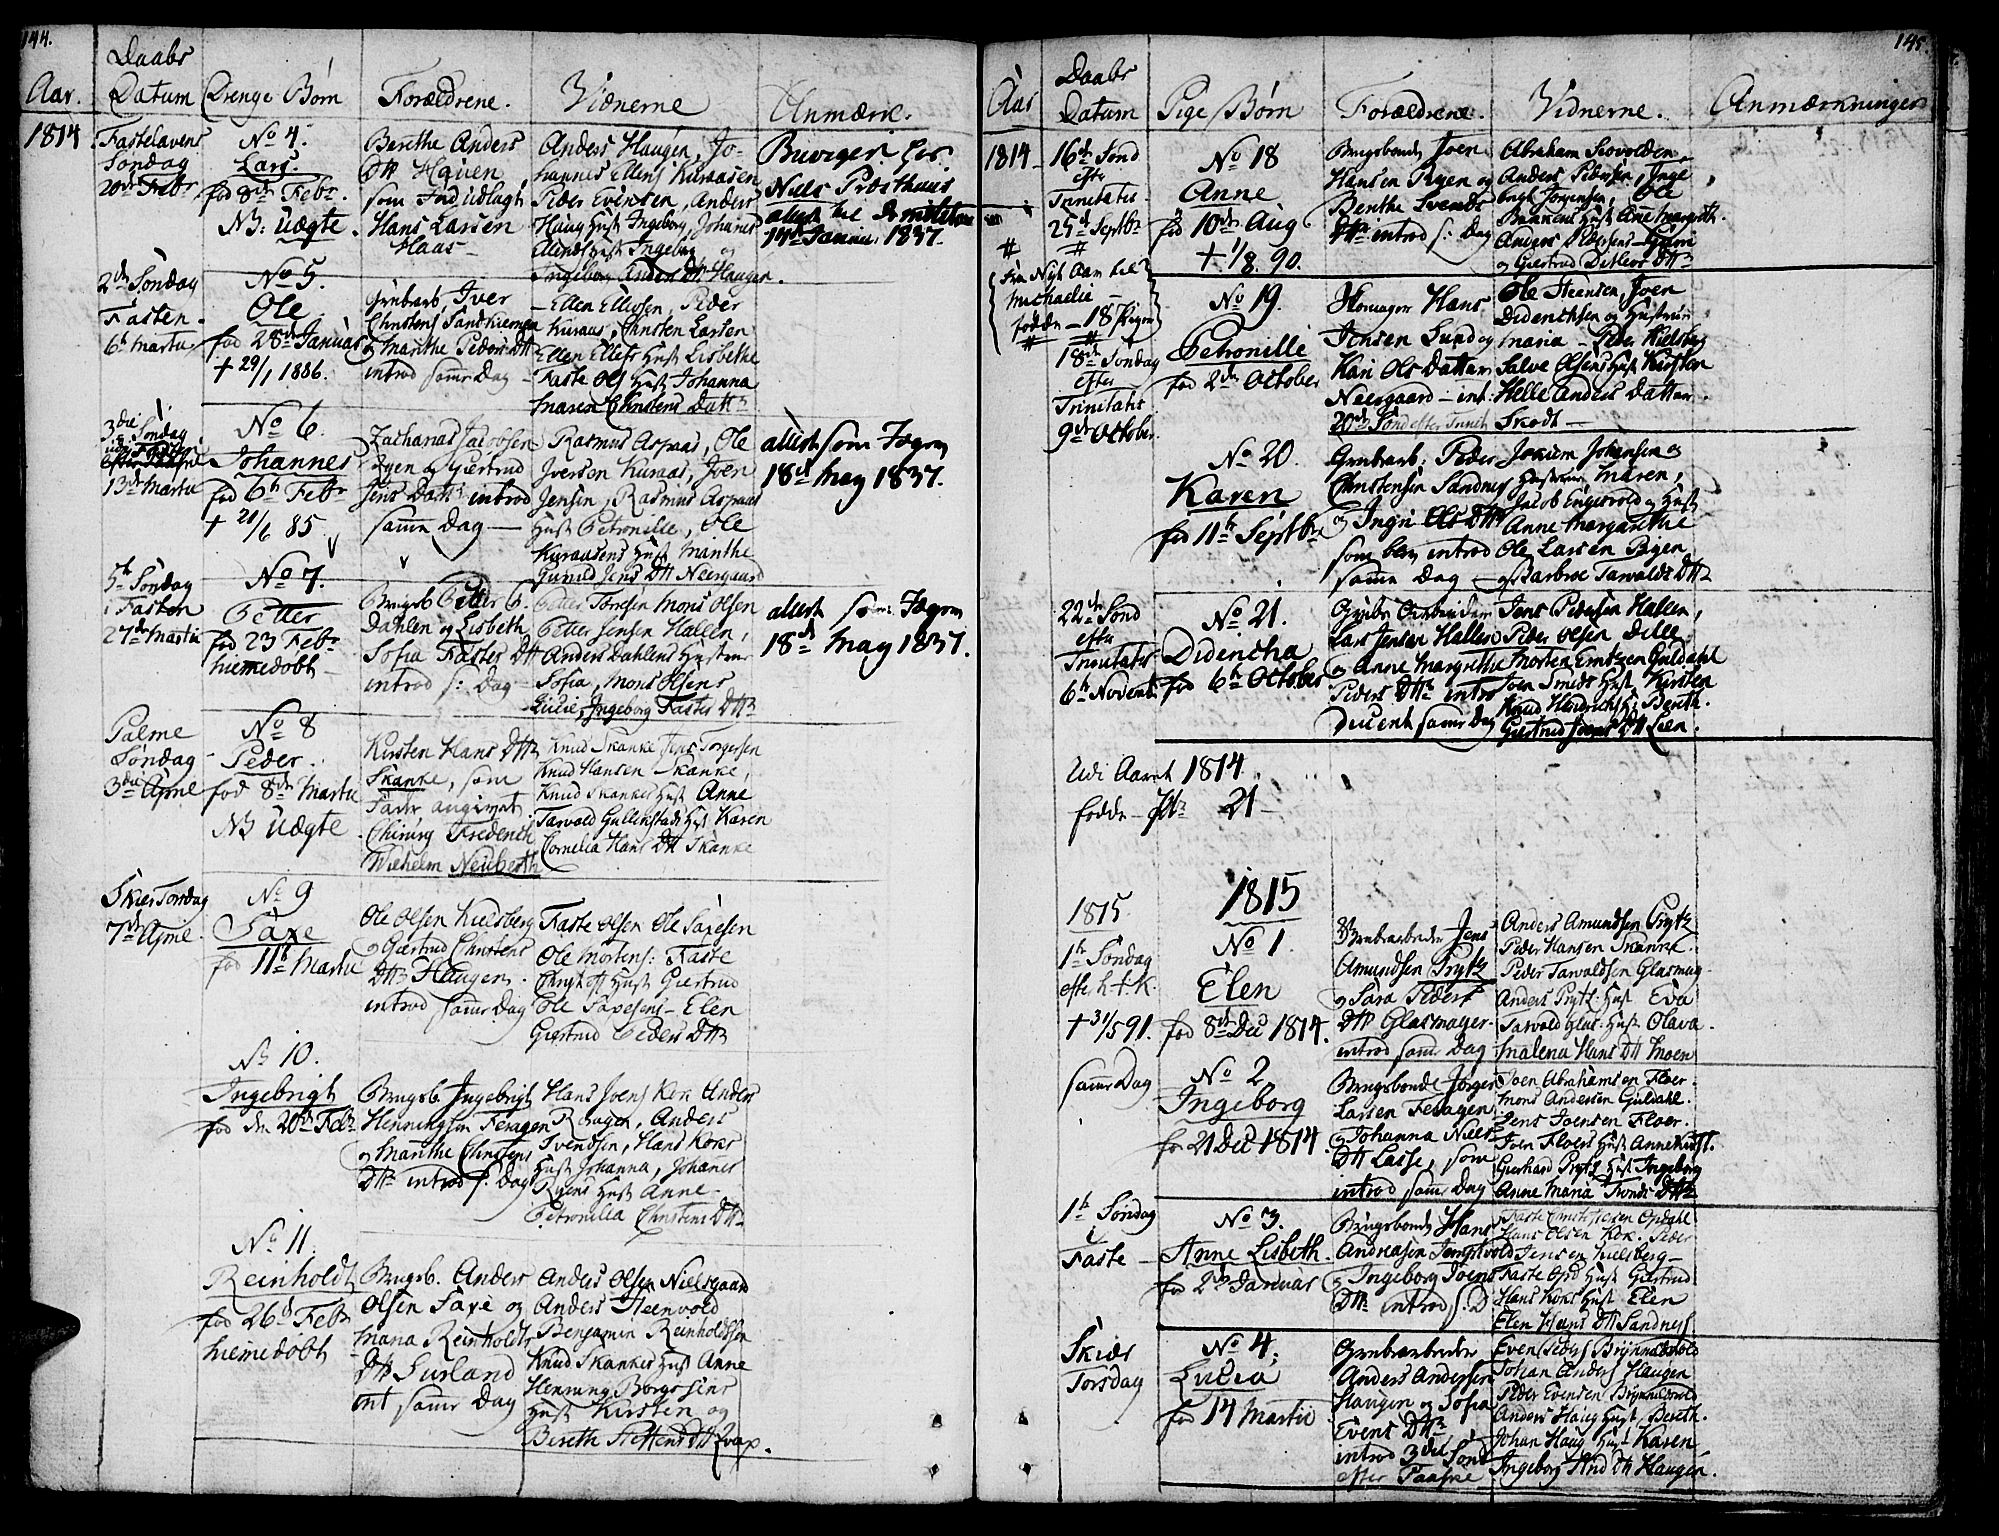 144.
Aar.
Daabs
Datum
Drenge Børn
Forældrene.
Vidnerne
Anmærk.
1814
Fastelavens
Søndag
20de Febr
No 4.
Lars.
fød 8de Febr
NB: Uægte.
Berthe Anders
Dtr Hauen
som
Hans Larsen
Haas
Anders Haugen, Jo-
hannes Ellens Kuraasen
Peder Evensen, Anders
Haug Hust Ingeborg, Johannes
Hust Ingeborg og
Ingeborg Anders Dtr Haugen.
Niels Præsthuus
14de Januar: 1837.
2den Søndag
Fasten.
6te Martii
No 5.
Ole
fød 28de Januar
+ 29/1 1886.
Grubearb Iver
Christens
og Marithe Peders Dtr
introd samme Dag
Ellen Ellefsen, Peder
Kuraas, Christen Larsen
Ellen Ellefs Hust Lisbethe
Faste Ols Hust Johanna
Maren Christens Dattr
3die Søndag
13de Martii
No 6
Johannes
fød 6te Febr
+ 21/6 85
Zacharias Jacobsen
Ryen og Giertrud
Jens Dattr introd
samme Dag
Rasmus Aspaas, Ole
Iversen Kuraas, Joen
Jensen, Rasmus Aspaas
Hust Petronille, Ole
Kuraasens Hust Marithe
Gunild Jens Dtr Neergaard
attest som Jægren
18de May 1837.
5te Søndag
i Fasten
27de Martii
No 7.
Petter
fød 23 Febr
hiemedøbt
Brugsb Petter P.
Dahlen og Lisbeth
Sofia Fastes Dtr
introd s: Dag
Petter Torresen Mons Olsen
Petter Jensen Hallen,
Anders Dahlens Hustrue
Sofia, Mons Olsens
Lucie, Ingeborg Fastes Dtr
attest som Jægren
18de May 1837.
Palme
Søndag
3die April
No 8
Peder.
fød 8de Martii
NB Uægte
Kirsten Hans Dtr
Skanke, som
Fader angivet
Chirurg Frederich
Wilhelm Neuberth
Knud Skanke Jens Torgersen
Knud Hansen Skanke,
Knud Skankes Hust Anne
Tarvald Gullikstads Hust Karen
Cornelia Hans Dtr Skanke
Skier Torsdag
7de April.
No 9
Saxe
fød 11te Martii
Ole Olsen Kielsberg
og Giertrud Christens
Dtr Haugen.
introd samme Dag
Faste Olsen Ole Saxesen
Ole Mortens: Faste
Christoff Hust Giertrud
Ole Saxesens - Elen
Giertrud Peders Dtr
No 10.
Ingebrigt
fød den 20de Febr
Brugsb. Ingebrigt
Henningsen Feragen
og Marithe Christens
Dtr introd s: Dag
Hans Joens Kok Anders
Rhagen, Anders
Svendsen, Hans Koks
Hust Johanna, Johanes
Ryens Hust Anne
Petronilla Christens Dtr
No 11.
Reinholdt
fød 26de Febr
hiemedøbt
Brugsb. Anders
Olsen Saxe og
Maria Reinholdts
Dtr Surland
int samme Dag
Anders Olsen Nielsgaard
Anders Steenvold
Benjamin Reinholdsen
Knud Skankes Hust Anne
Henning Borgosens
Hust Kirsten og
Bereth Steffens Dtr Zvap.
145.
Aar
Daabs
Datum
Pige Børn
Forældrene.
Vidnerne.
Anmærkninger
1814
16de Sønd
efter
Trinitatis
25de Septbr
#
Fra Nyt Aar til
Michaelis
fødde - 18 Piger
#
No 18
Anne
fød 10de Aug
+ 1/8. 90.
Brugsbonde Joen
Hansen Ryen og
Berithe Svends
Dtr introd s: Dag
Abraham Scovolden,
Anders Pedersen, Inge
brigt Jørgensen, Ole
Bakkens Hust Ane Margreth.
Anders Pedersens
og Giertrud Ditlevs Dtr
18de Søndag
efter
Trinitatis
9de October
No 19.
Petronille
fød 2den October
Hans
Jensen Lund og
Kari Ols Datter
Neergaard - int:
20de Sønd efter Trinit
Ole Steensen, Joen
Diderichsen og Hustrue
Maria - Peder Kielsberg
Salve Olsens Hust Kirsten
Helle Anders Datter.
Skodt -
No 20.
Karen
fød 11te Septbr
Grubearb: Peder
Christensen Sandnes
og Ingri Ols Dtr
som blev introd
samme Dag
Jokum Johansen og
Hustrue Maren,
Jacob Engesvold og Hust
Anne Margarethe
Ole Larsen Ryen
og Barbroe Tarvalds Dtr
22de Sønd
efter
Trinitatis
6te Novembr
No 21.
Didericha
fød 6te October
Grube Arbeider
Lars Jensen Hallen
og Anne Margrethe
Peders Dtr introd
ducent samme Dag
Jens Pedersen Hallen,
Peder Olsen Dille
Morten Erntzen Guldahl
Joen Smeds Hust Kirsten
Knud Hindrichs Hu: Bereth.
Giertrud Joens Dtr Lien.
Udi Aaret 1814
fødde 21
1815
1815.
1te Søndag
efter h. t. k.
+ 31/5 91.
No 1.
Elen
fød 8de Dec 1814.
Grubearbeider Jens
Amundsen Prytz
og Sara Peders
Dtr Glasmager.
introd samme Dag
Anders Amundsen Prytz
Peder Hansen Skanke
Peder Tarvaldsen Glasmag
Anders Prytz: Hust Eva
Tarvald Glas: Hust Olava.
Malena Hans Dtr Moen
samme Dag
No 2
Ingeborg
fø 21 Dec 1814.
Brugsbonde Jørgen
Larsen Feragen
og Johanna Niels
Dtr Lasse, som
introd samme Dag
Joen Abrahamsen Floer.
Mons Andersen Guldahl.
Jens Joensen Floer.
Joen Floers Hust Anne Kirst.
Gierhard Prytz Hust Ingeborg
Anne Maria Tronds Dtr
1te Søndag
i
Faste
No 3.
Anne Lisbeth.
fød 2den Januar
Brugsbonde Hans
Andreasen Jengtvold
og Ingeborg Joens
Dtr introd s: D
Faste Christophersen Opdahl
Hans Olsen Kok. Peder
Jensen Kielsberg
Faste Opd Hust Giertrud
Hans Koks Hust Elen
Elen Hans Dtr Sandnes
Skiær
Torsdag
No 4.
Lucia
fød 14 Martii
Grubearbeider
Anders Andersen
Haugen og Sofia
Evens Dtr
introd 3die Sønd
efter Paaske
Even Peders Brynnildsvold
Johan Anders Haugen
Peder Evensen Brynnildsvold
Anders Haug Hust Bereth.
Johan Haug Hust Karen
Ingeborg And Dtr Haugen.